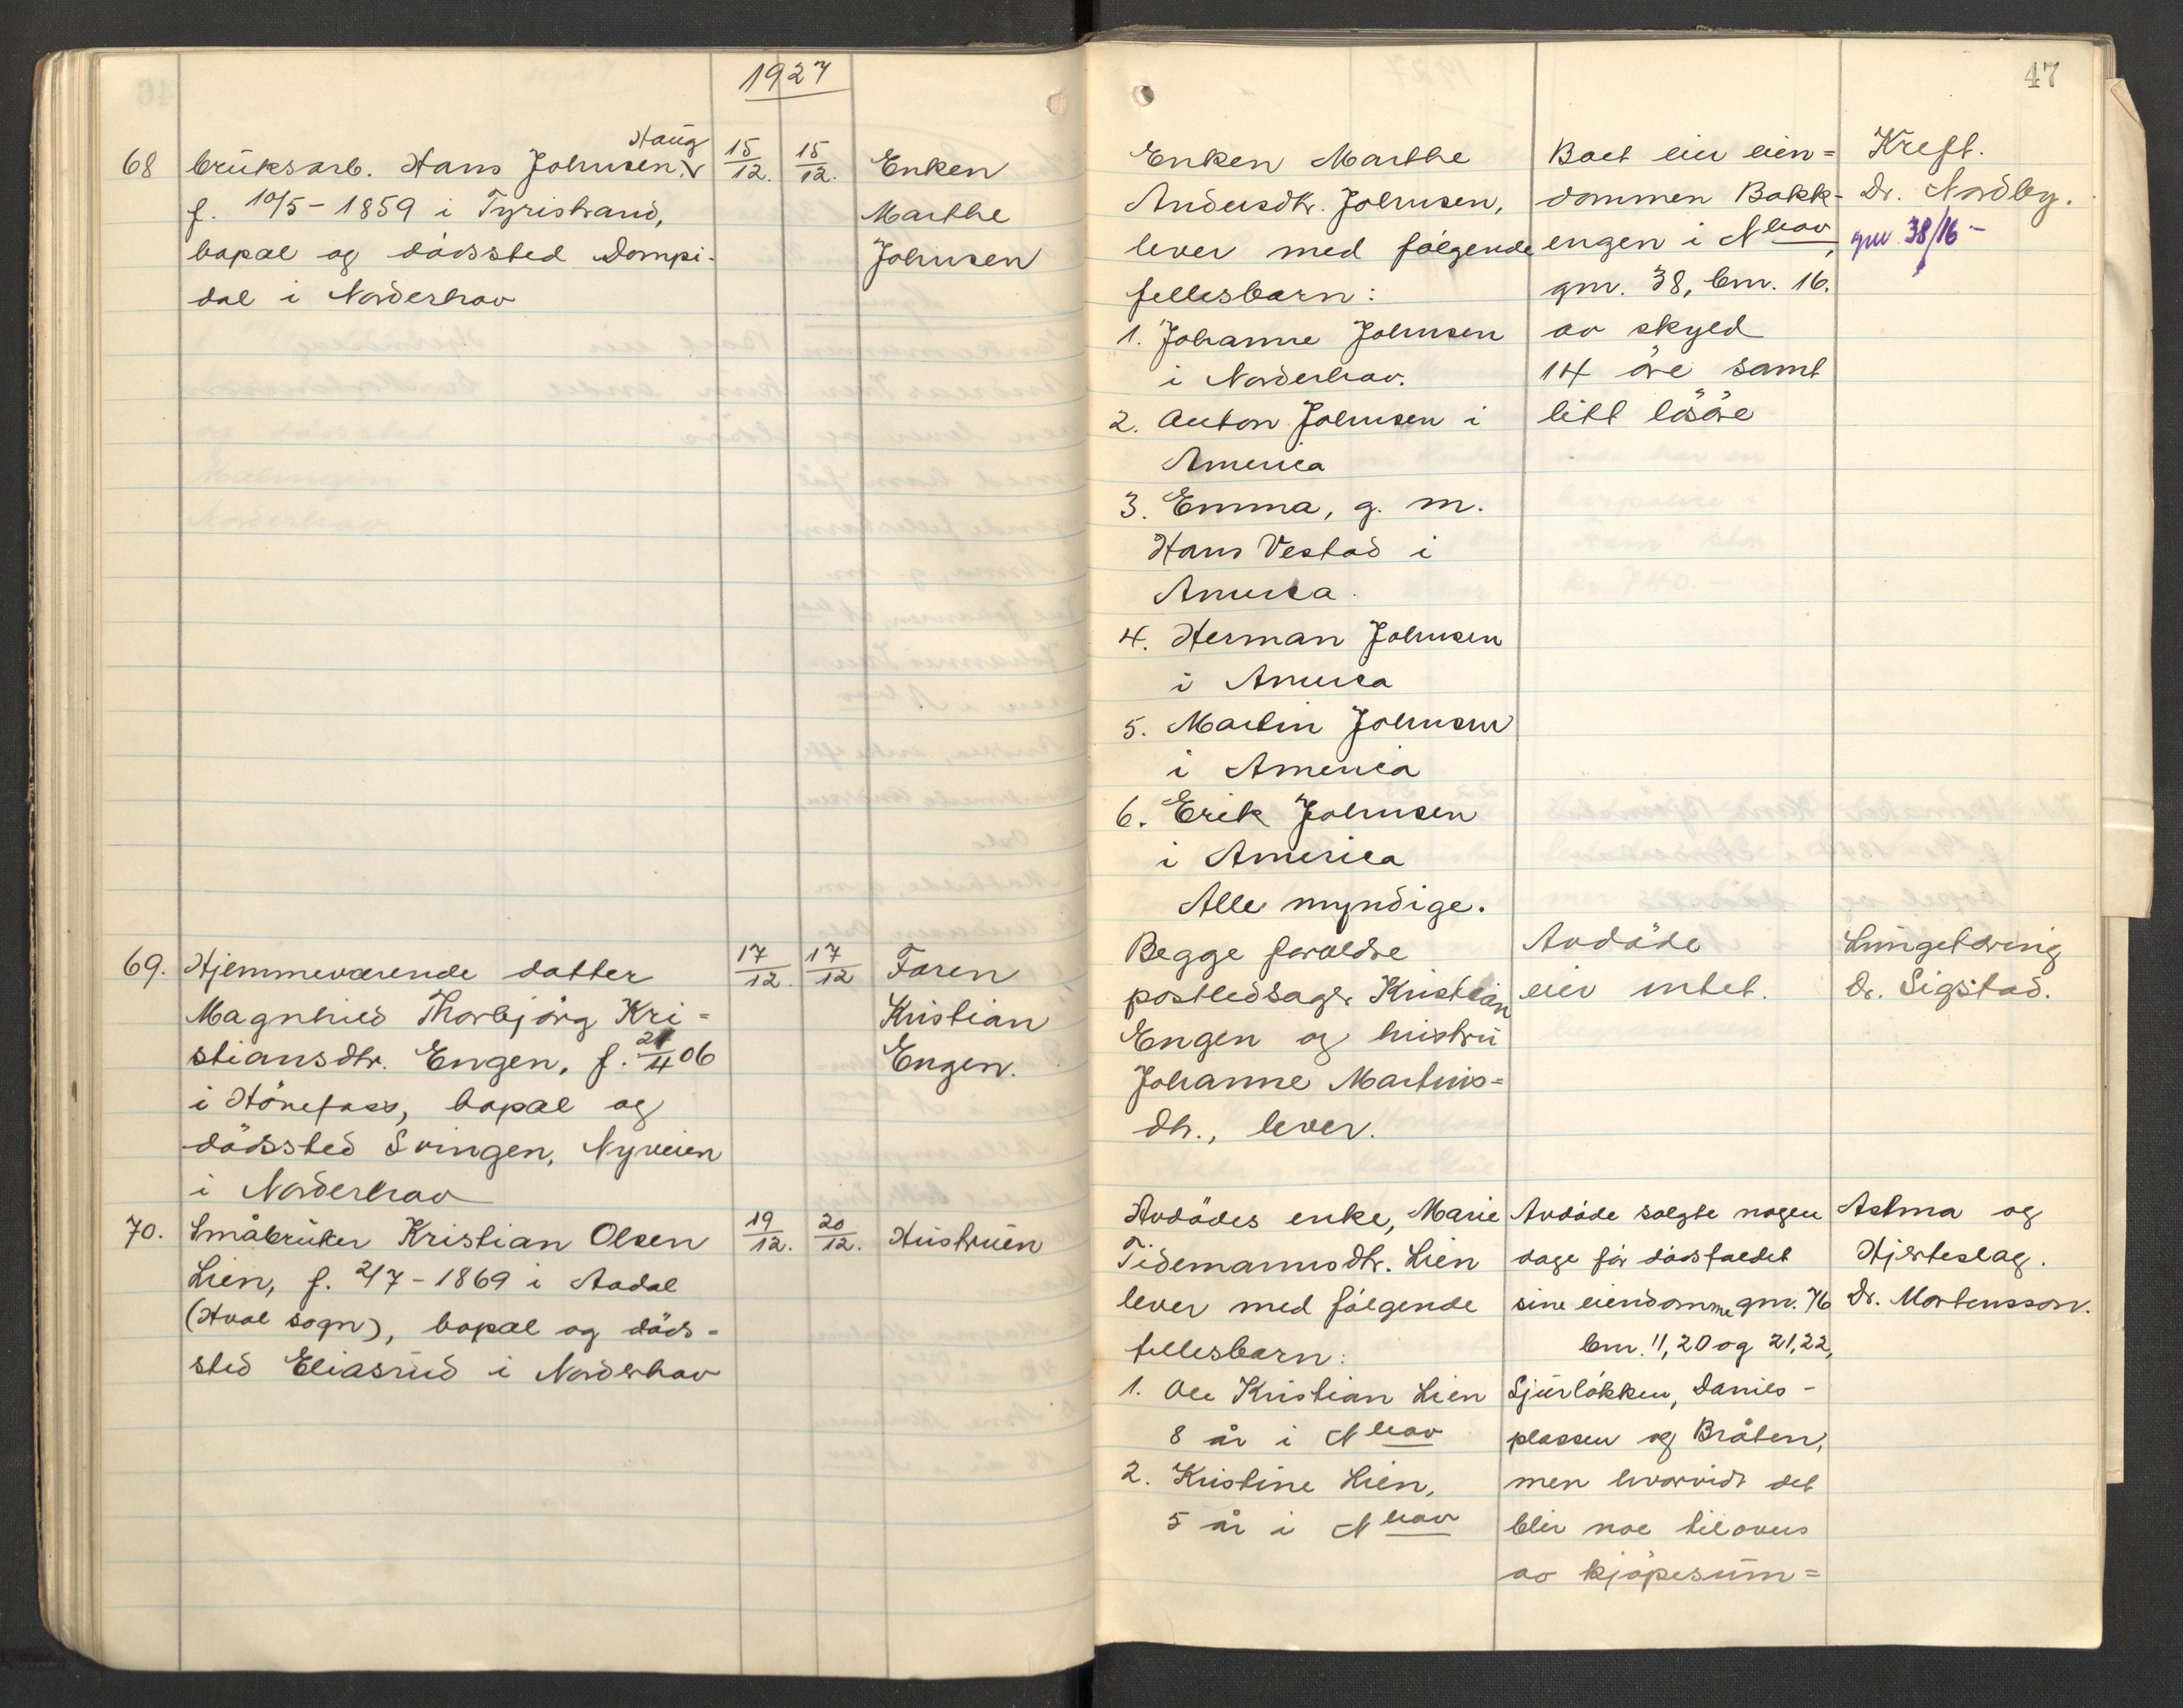 1927
68 bruksarb. Hans Johnsen Haug 15/12. 15/12. Enken
f. 10/5 - 1859 i Tyristrand, Marthe
bopæl og dödssted Dompi- Johnsen
dal i Norderhov
69. Hjemmeværende datter 17/12. 17/12 Faren
Magnhild Thorbjörg Kri= Kristian
stiansdtr. Engen, f. 21/4 06 Engen.
i Hönefoss, bopæl og
dödssted Svingen, Nyveien
i Norderhov
70. Småbruker Kristian Olsen 19/12. 20/12. Hustruen
Lien, f. 2/7 - 1869 i Aadal
(Hval sogn), bopæl og döds=
sted Eliasrud i Norderhov
47
Enken Marthe Boet eier eien= Kreft.
Andersdtr. Johnsen, dommen Bakk- Dr. Nordby.
lever med fölgende engen i Nhov, gnr 38/16 -
fellesbarn: gnr. 38, bnr. 16.
1. Johanne Johnsen av skyld
i Norderhov. 14 öre samt
2. Anton Johnsen i litt lösöre
America
3. Emma, g. m.
Hans Vestad i
America.
4. Herman Johnsen
i America
5. Martin Johnsen
i America
6. Erik Johnsen
i America
Alle myndige.
Begge foreldre Avdöde Lungetæring
postledsager Kristian eier intet. Dr. Sigstad.
Engen og hustru
Johanne Martins=
dtr., lever.
Avdödes enke, Marie Avdöde solgte nogen Astma og
Tidemannsdtr. Lien dage för dödsfaldet Hjerteslag.
lever med fölgende sine eiendomme gnr. 76 Dr. Mortensson.
fellesbarn: bnr. 11, 20 og 21, 22,
1. Ole Kristian Lien Sjurlökken, Daniels-
8 år i Nhov plassen og Bråten,
2. Kristine Lien, men hvorvidt det
5 år i Nhov blir noe tilovers
av kjöpesum=